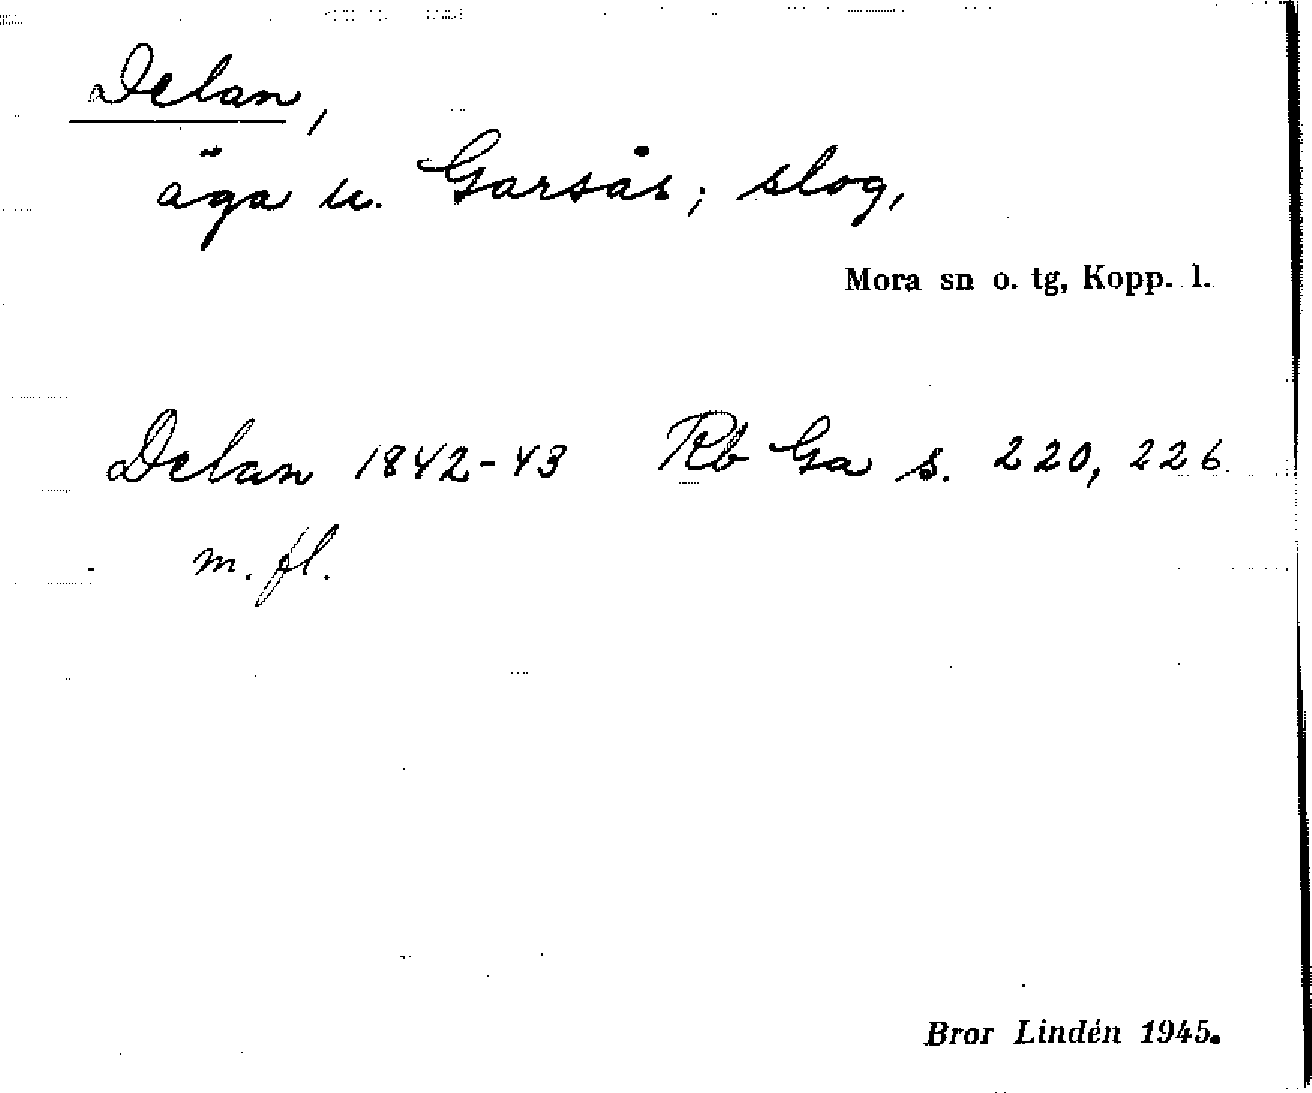 Delan,
äga u. Garsås; slog,
Mora sn o. tg, Kopp. l.
Delan 1842-43 Rb Ga s. 220, 226
m. fl.
Bror Lindén 1945.